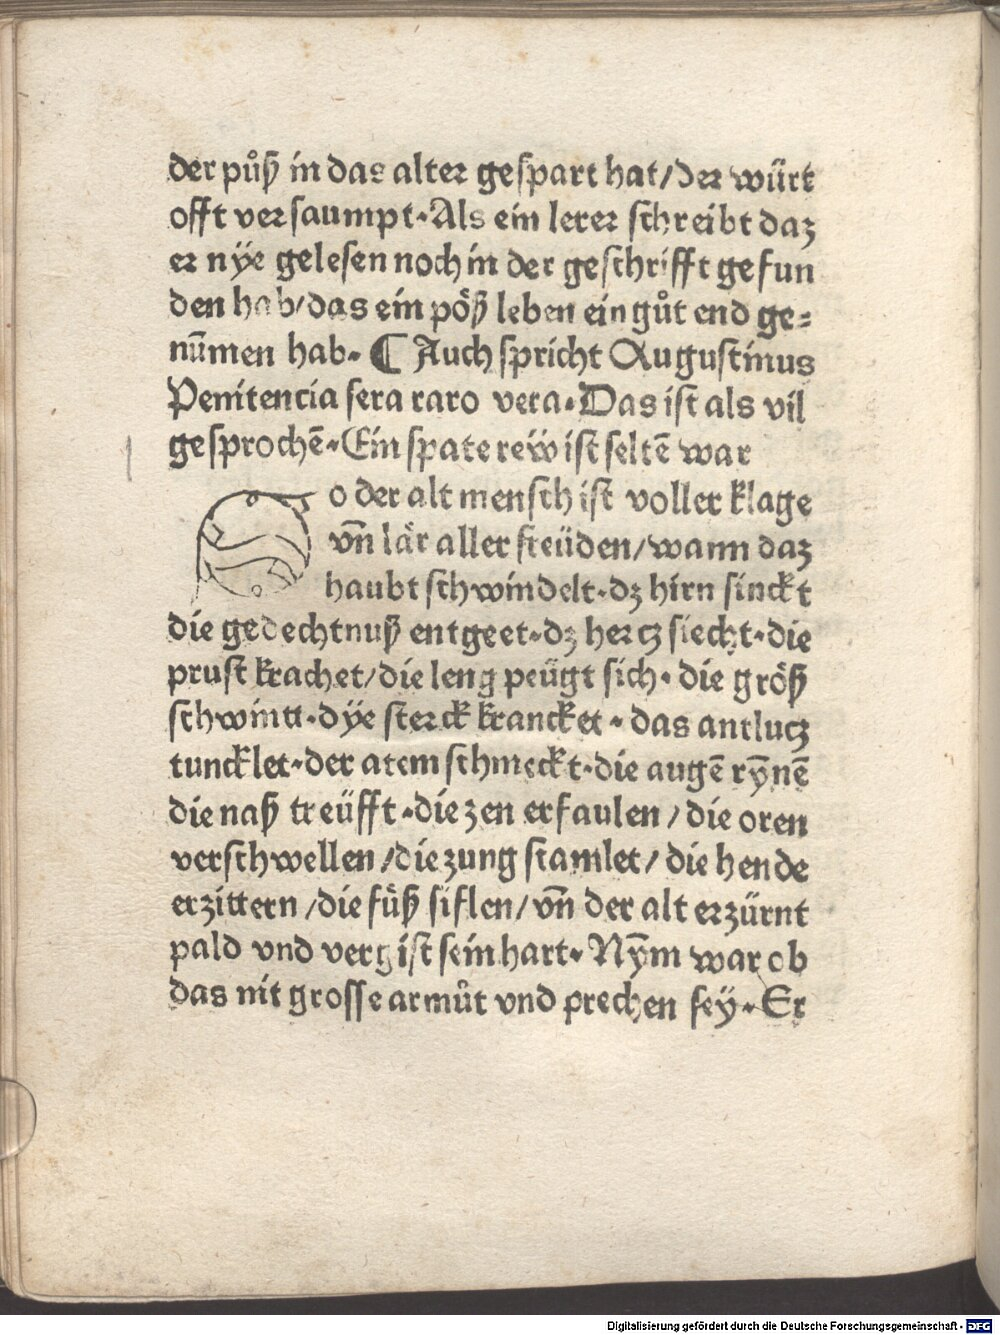 der půß in das alter gespart hat/der würt
offt versaumpt·Als ein lerer schreibt daz
er nÿe gelesen noch in der geschrifft gefun
den hab/das ein pöß leben ein gůt end ge=
nūmen hab· ¶ Auch spricht Augustinus
Penitencia sera raro vera·Das ist als vil
gesprochē·Ein spate reẅ ist seltē war
So der alt mensch ist voller klage
vn̄ lär aller freüden/wann daz
haubt schwindelt·dz hirn sinckt
die gedechtnuß entgeet·dz hercz siecht·die
prust krachet/die leng peügt sich· die größ
schwintt·dÿe sterck krancket· das antlucz
tuncklet·der atem schmeckt·die augē rȳnē
die naß treüfft·die zen erfaulen/die oren
verschwellen/die zung stamlet/die hende
erzittern/die füß siflen/vn̄ der alt erzürnt
pald vnd vergist sein hart·Nȳm war ob
das nit grosse armůt vnd prechen seÿ·Er
Digitalisierung gefördert durch die Deutsche Forschungsgemeinschaft - DFG